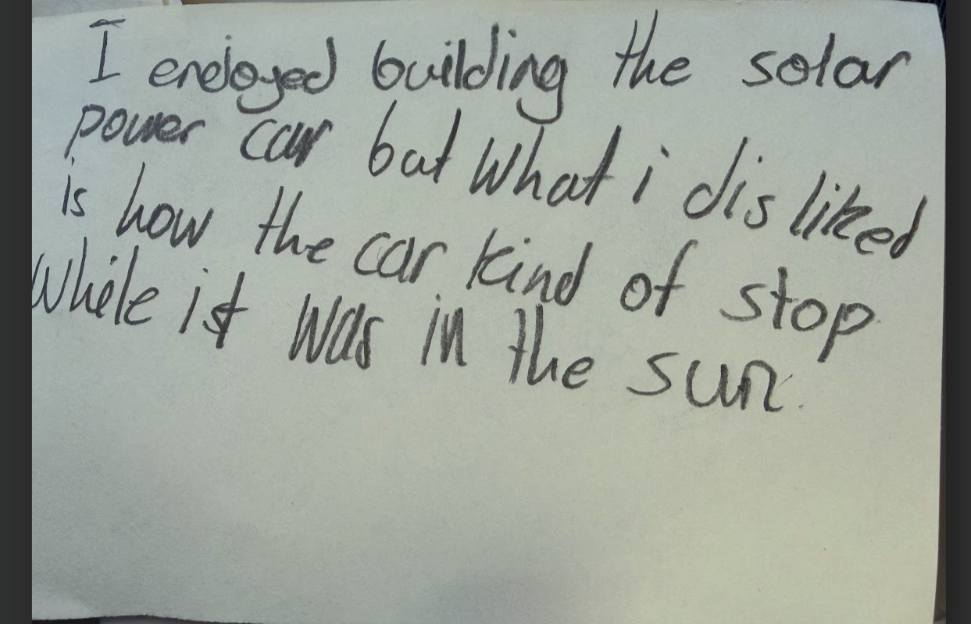 I enojoyed building the solar
power car but what i disliked
is how the car kind of stop
While ist was in the sun.